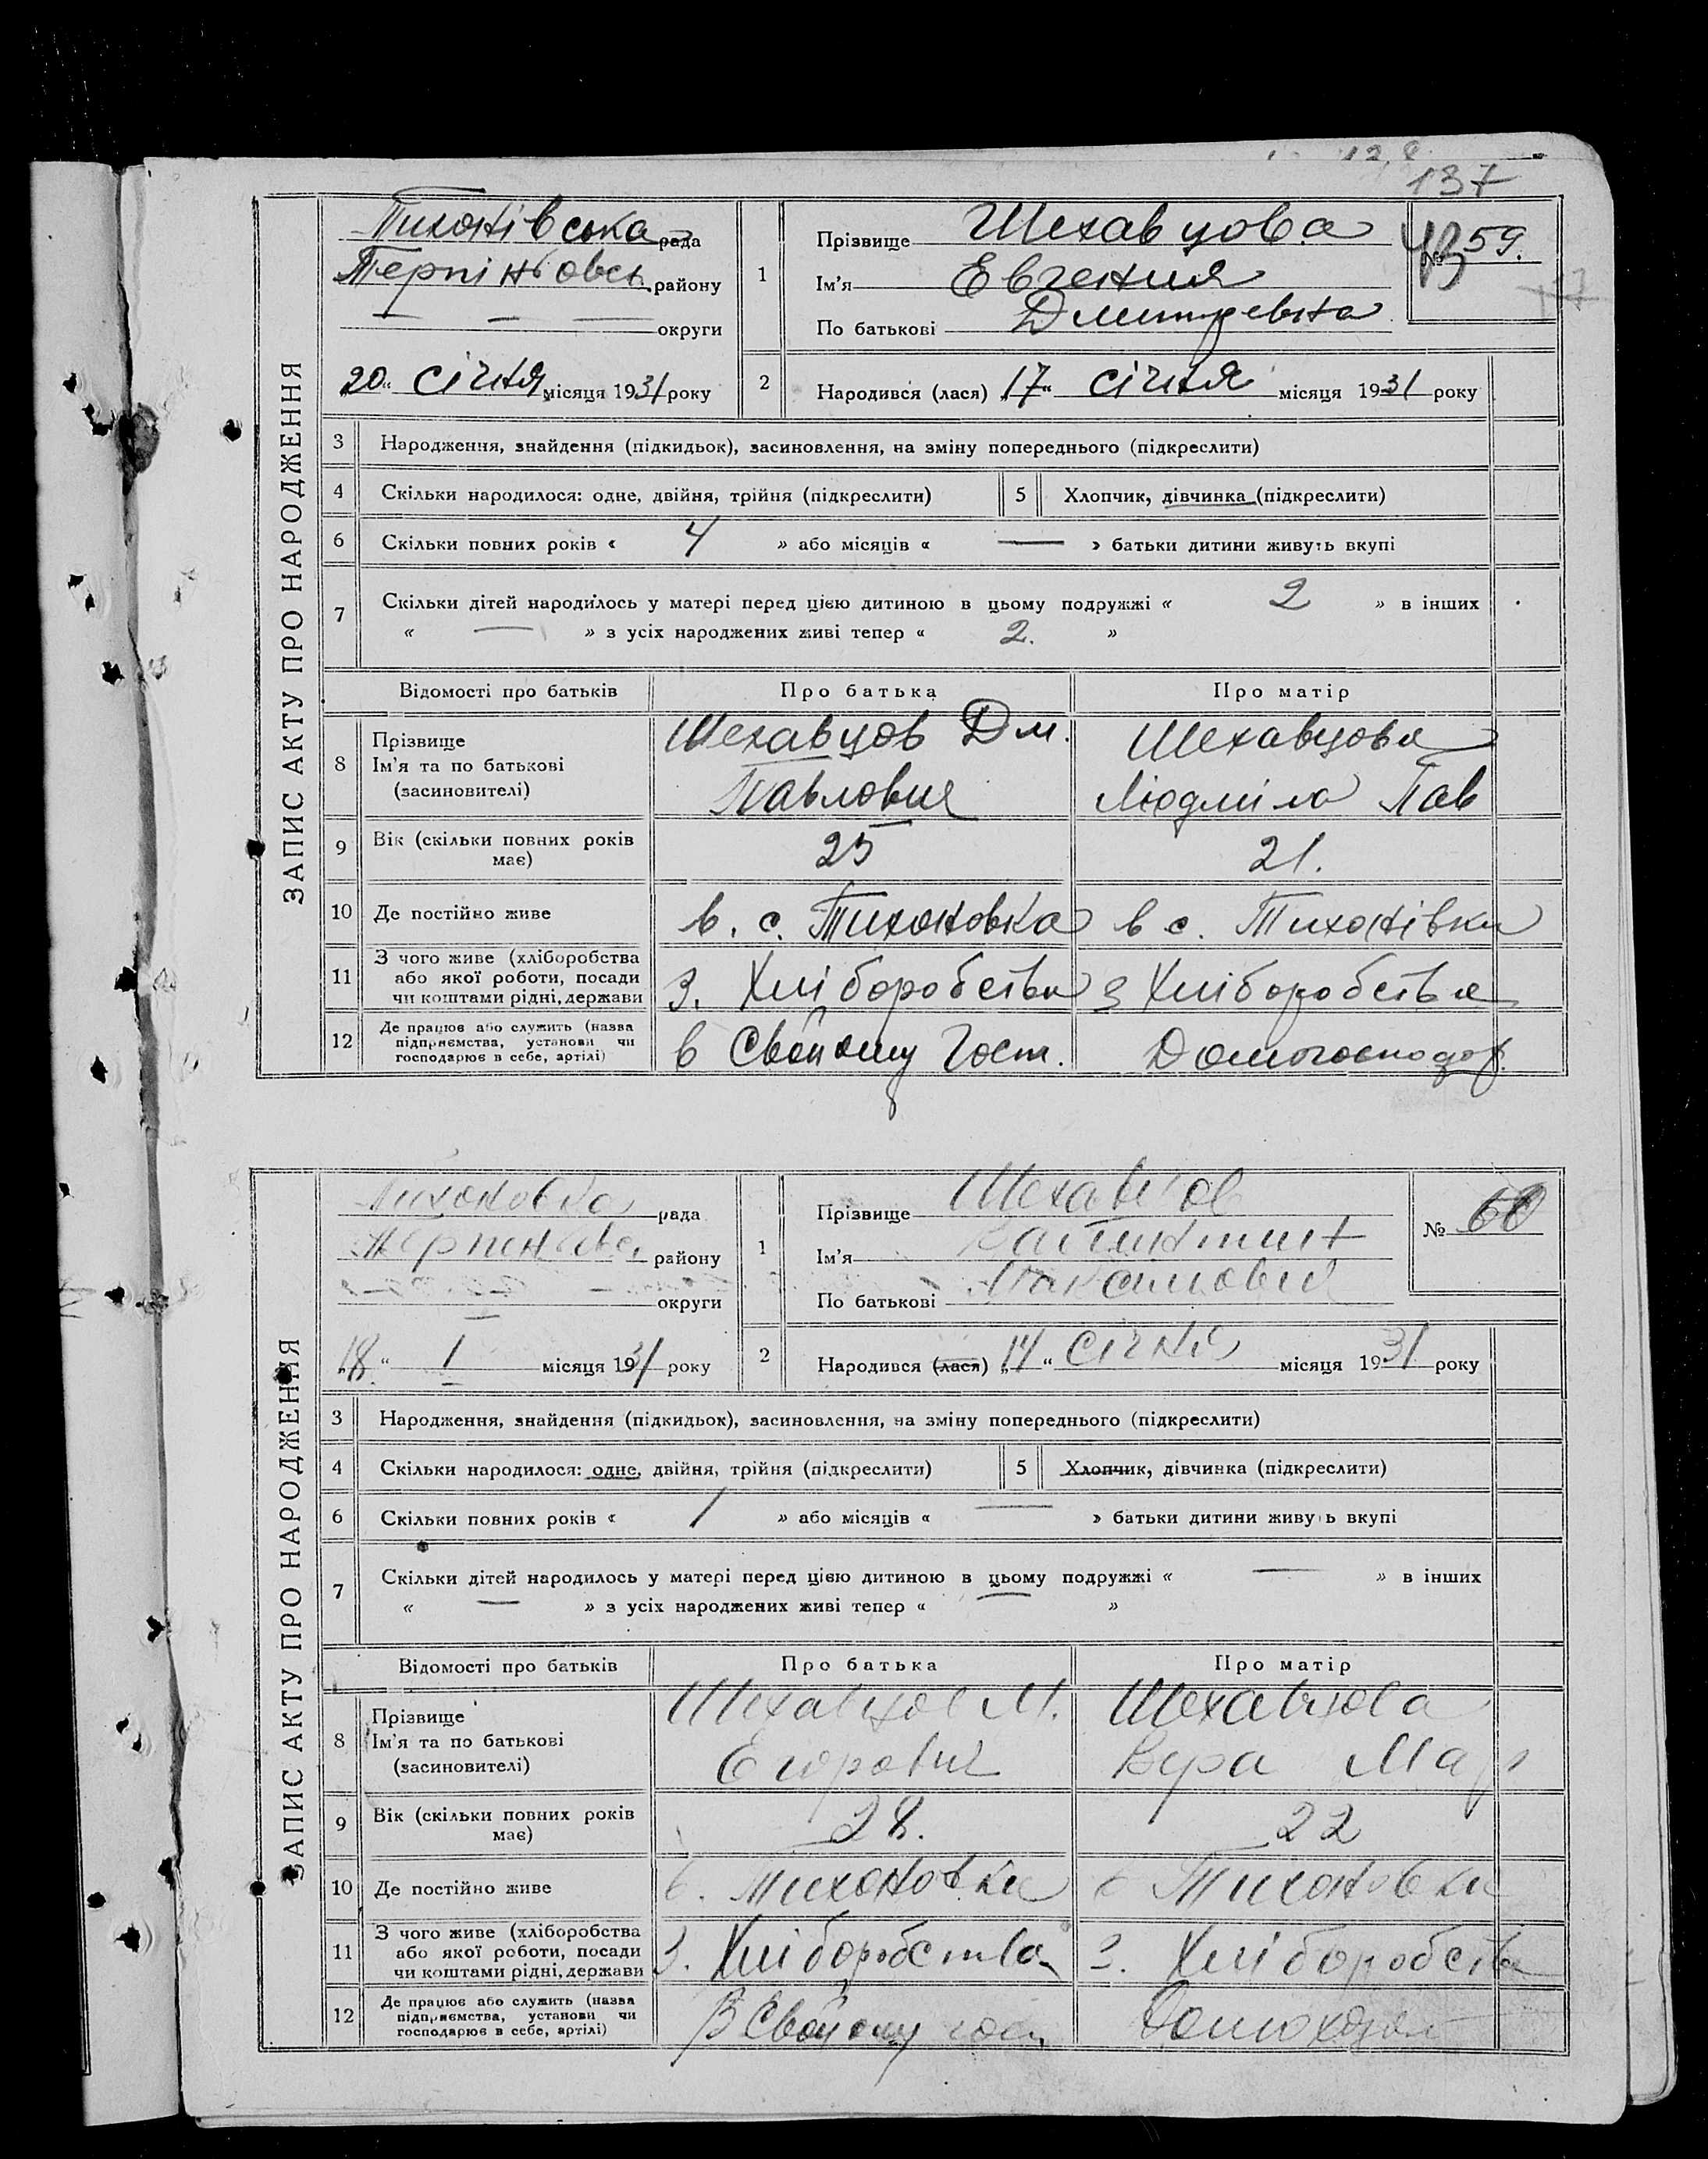 137
ЗАПИС АКТУ ПРО НАРОДЖЕННЯ
Тихонівська рада
Терпіньовск. району
— — — округи
20 " січня місяця 1931 року
1
Прізвище Шехавцова
Ім'я Евгения
По батькові Дмитревна
№ 59.
2
Народився (лася) „17" січня місяця 1931 року
3 Народження, знайдення (підкидьок), засиновлення, на зміну попереднього (підкреслити)
4 Скільки народилося: одне, двійня, трійня (підкреслити)
5 Хлопчик, дівчинка (підкреслити)
6 Скільки повних років « 4 » або місяців « — » батьки дитини живуть вкупі
7 Скільки дітей народилось у матері перед цією дитиною в цьому подружжі « 2 » в інших
« — » з усіх народжених живі тепер « 2. »
Відомості про батьків Про батька Про матір
8 Прізвище
Ім'я та по батькові
(засиновителі)
Шехавцов Дм.
Павлович
Шехавцова
Людміла Пав
9 Вік (скільки повних років
має)
25
21.
10 Де постійно живе
в. с. Тихоновка
в с. Тихонівки
11 З чого живе (хліборобства
або якої роботи, посади
чи коштами рідні, держави
З. Хліборобства
З Хліборобства
12 Де працює або служить (назва
підприємства, установи чи
господарює в себе, артілі)
в Свойому Госп.
Домогосподар.
ЗАПИС АКТУ ПРО НАРОДЖЕННЯ
Тихоновка рада
району
округи
„18 " 1 місяця 1931 року
1
Прізвище Шехавцов
Ім'я
По батькові Максимович
№ 60
2
Народився (лася) „14 " січня місяця 1931 року
3 Народження, знайдення (підкидьок), засиновлення, на зміну попереднього (підкреслити)
4 Скільки народилося: одне, двійня, трійня (підкреслити)
5 Хлопчик, дівчинка (підкреслити)
6 Скільки повних років « 1 » або місяців « — » батьки дитини живуть вкупі
7 Скільки дітей народилось у матері перед цією дитиною в цьому подружжі « — » в інших
« — » з усіх народжених живі тепер « — »
Відомості про батьків Про батька Про матір
8 Прізвище
Ім'я та по батькові
(засиновителі)
Шехавцов М.
Егорович
Шехавцова
Вера Мар
9 Вік (скільки повних років
має)
28.
22
10 Де постійно живе
в. Тихоновки
в Тихоновки
11 З чого живе (хліборобства
або якої роботи, посади
чи коштами рідні, держави
З. Хліборобства
З. Хліборобства
12 Де працює або служить (назва
підприємства, установи чи
господарює в себе, артілі)
В Свойому госп